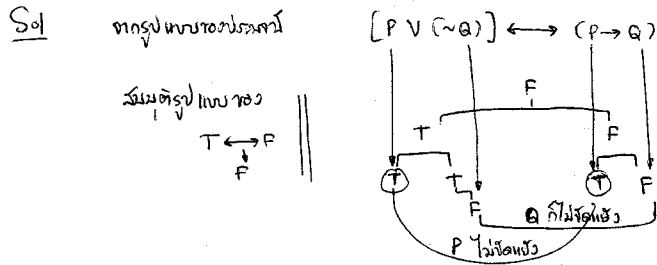 Sol จากรูปแบบของประพจน์ [P V (~Q)] ⟷ (P → Q)
สมมุติรูปแบบของ
F
T ⟷ F
F
T F
T T T F
F
Q ก็ไม่ขัดแย้ง
P ไม่ขัดแย้ง